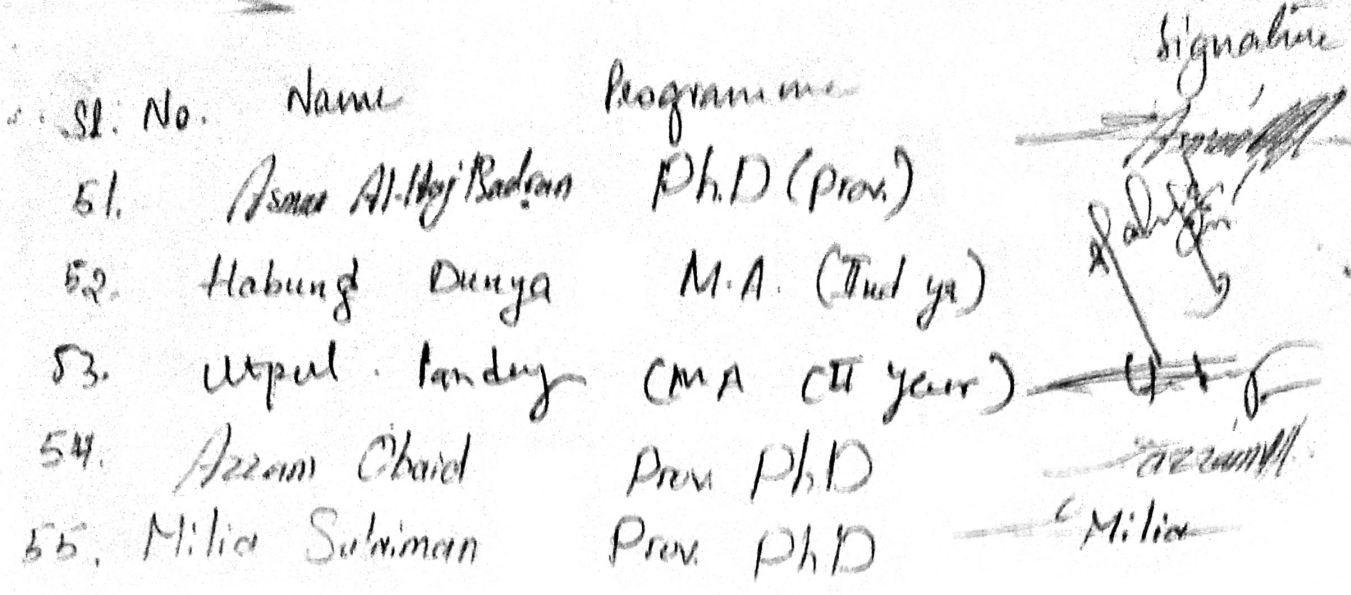 Sl. No. Name Programme Signature
51. Asmar Al-Haj Badran Ph.D (Prov.)
52. Habung Dunya M.A. (IInd yr)
53. Utpul. Pandey (MA (II year)
54. Azzam Obaid Prov. PhD azzam
55. Milia Sulaiman Prov. PhD Milia